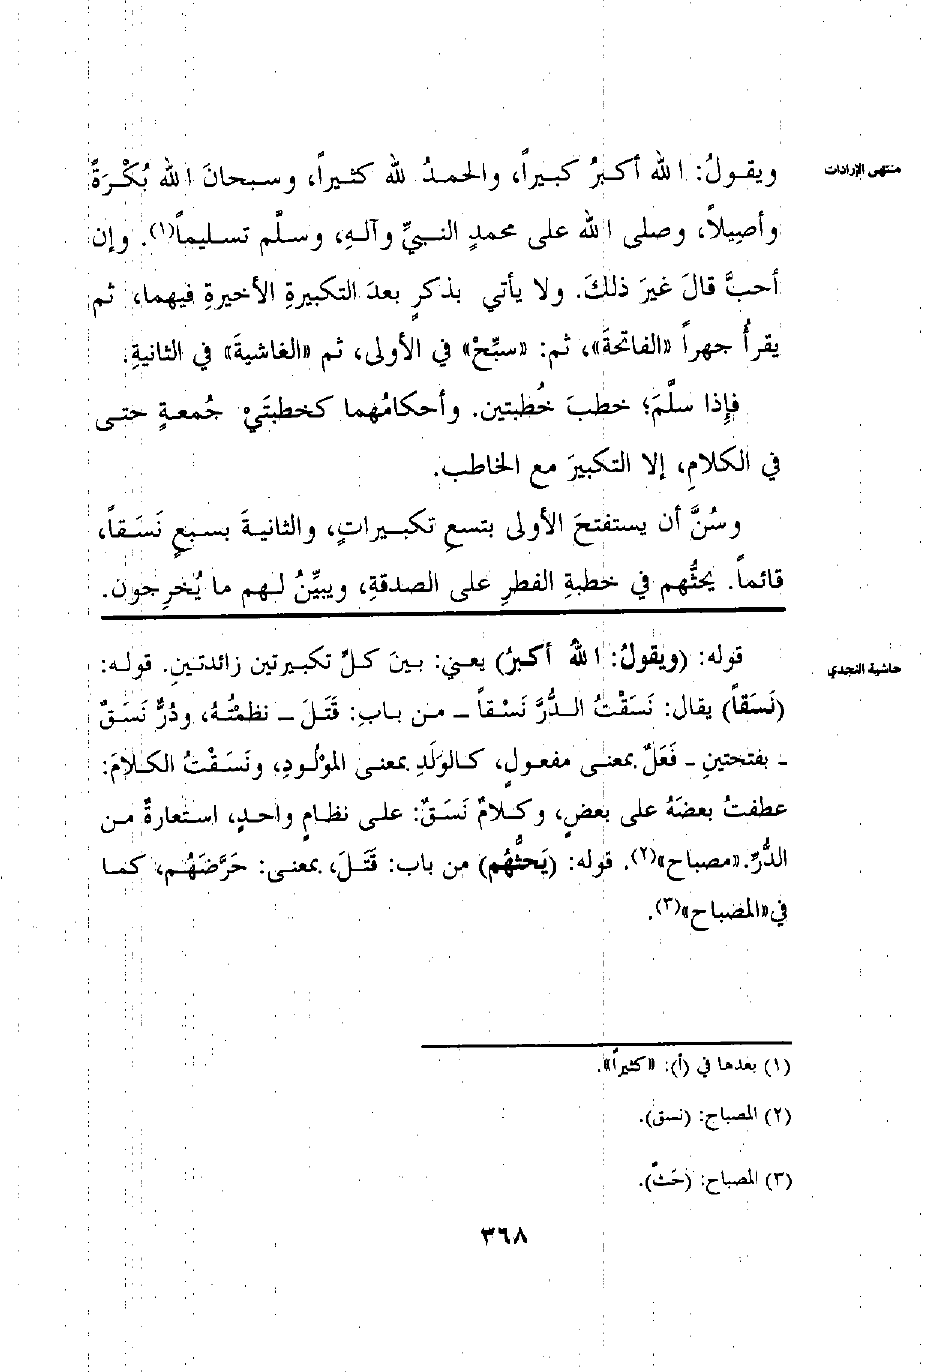 منتهى الإرادات
ويقولُ: الله أكبرُ كبيراً، والحمدُ لله كثيراً، وسبحانَ الله بُكْرَةً
وأصِيلاً، وصلى الله على محمدٍ النبيِّ وآلهِ، وسلَّم تسليماً(١). وإن
أحبَّ قالَ غيرَ ذلكَ. ولا يأتي بذكرٍ بعدَ التكبيرةِ الأخيرةِ فيهما، ثم
يقرأُ جهراً «الفاتحةَ»، ثم: «سبِّحْ» في الأولى، ثم «الغاشيةَ» في الثانيةِ.
فإِذا سلَّمَ؛ خطبَ خُطبتين. وأحكامُهما كخطبتَيْ جُمعةٍ حتى
في الكلامِ، إلا التكبيرَ مع الخاطب.
وسُنَّ أن يستفتحَ الأولى بتسعِ تكبيراتٍ، والثانيةَ بسبعٍ نَسَقاً،
قائماً. يحثُّهم في خطبةِ الفطرِ على الصدقةِ، ويبيِّنُ لهم ما يُخرِجون.
حاشية النجدي
قوله: (ويقولُ: اللهُ أكبرُ) يعني: بينَ كلِّ تكبيرتين زائدتينِ. قوله:
(نَسَقاً) يقال: نَسَقْتُ الدُّرَّ نَسْقاً ـ من بابِ: قَتَلَ ـ نظمتُهُ، ودُرٌّ نَسَقٌ
ـ بفتحتينِ ـ فَعَلٌ بمعنى مفعولٍ، كالوَلَدِ بمعنى المَوْلُودِ، ونَسَقْتُ الكلامَ:
عطفتُ بعضَهُ على بعضٍ، وكلامٌ نَسَقٌ: على نظامٍ واحدٍ، استعارةٌ من
الدُّرِّ. «مصباح»(٢). قوله: (يَحثُّهُم) من باب: قَتَلَ، بمعنى: حَرَّضَهُم، كما
في«المصباح»(٣).
(١) بعدها في (أ): «كثيراً».
(٢) المصباح: (نسق).
(٣) المصباح: (حَثَّ).
٣٦٨